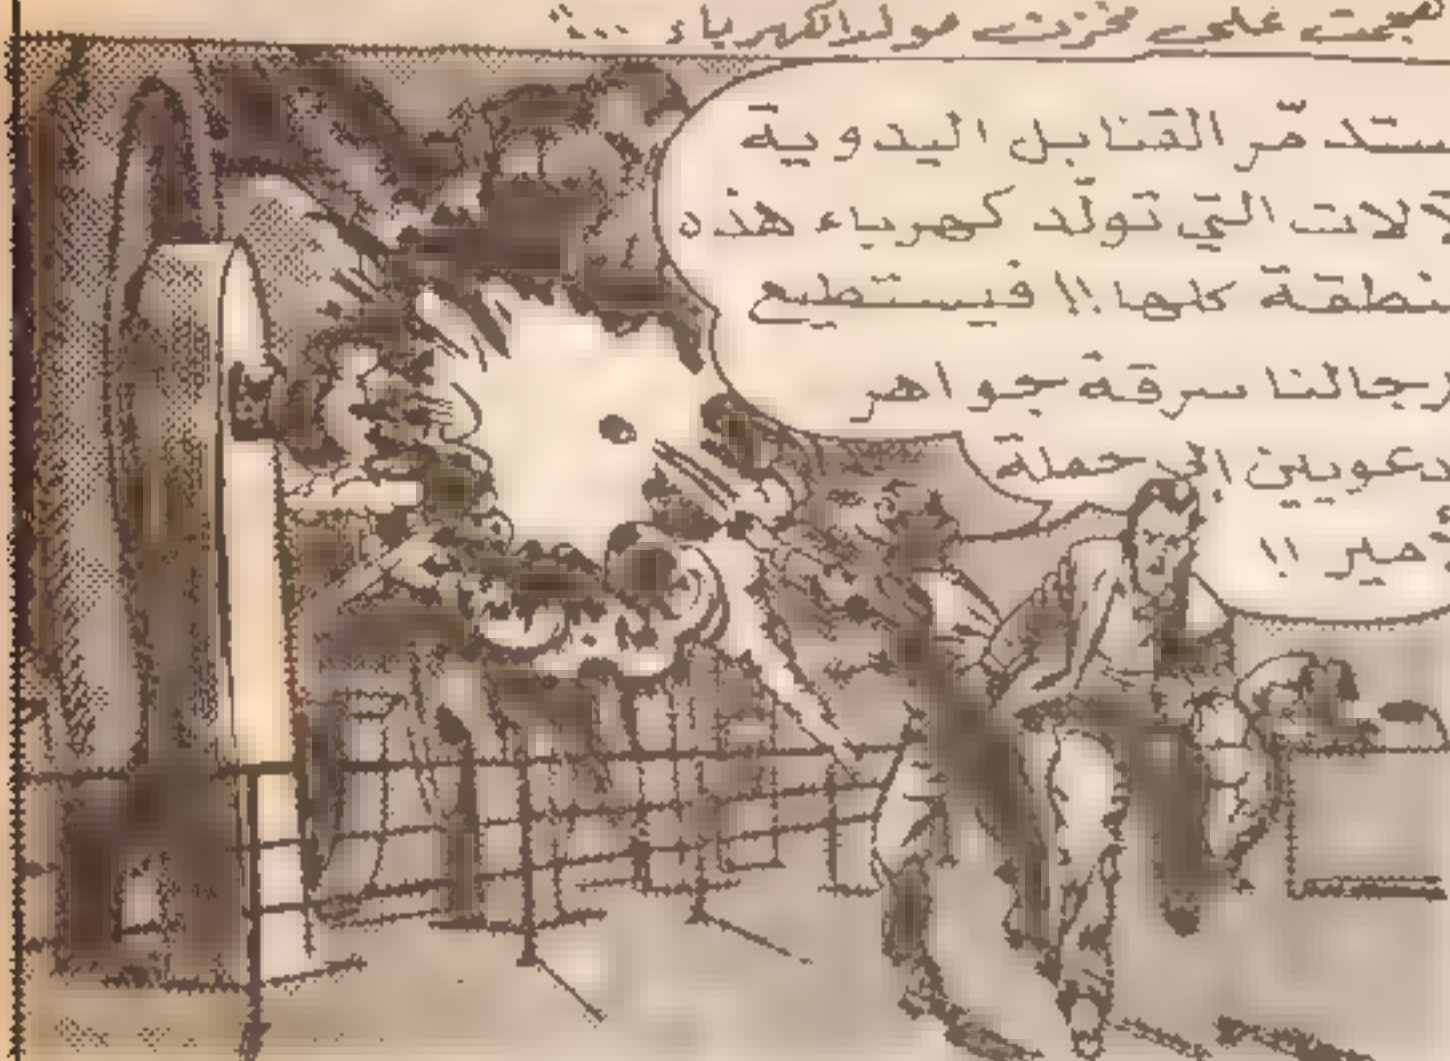 على مخزن مولد الكهرباء ...
ستدمّر القنابل اليدوية
لآلات التي تولّد كهرباء هذه
نطقة كلها !! فيستطيع
رجالنا سرقة جواهر
دعوين إلى حملة
أمير !!